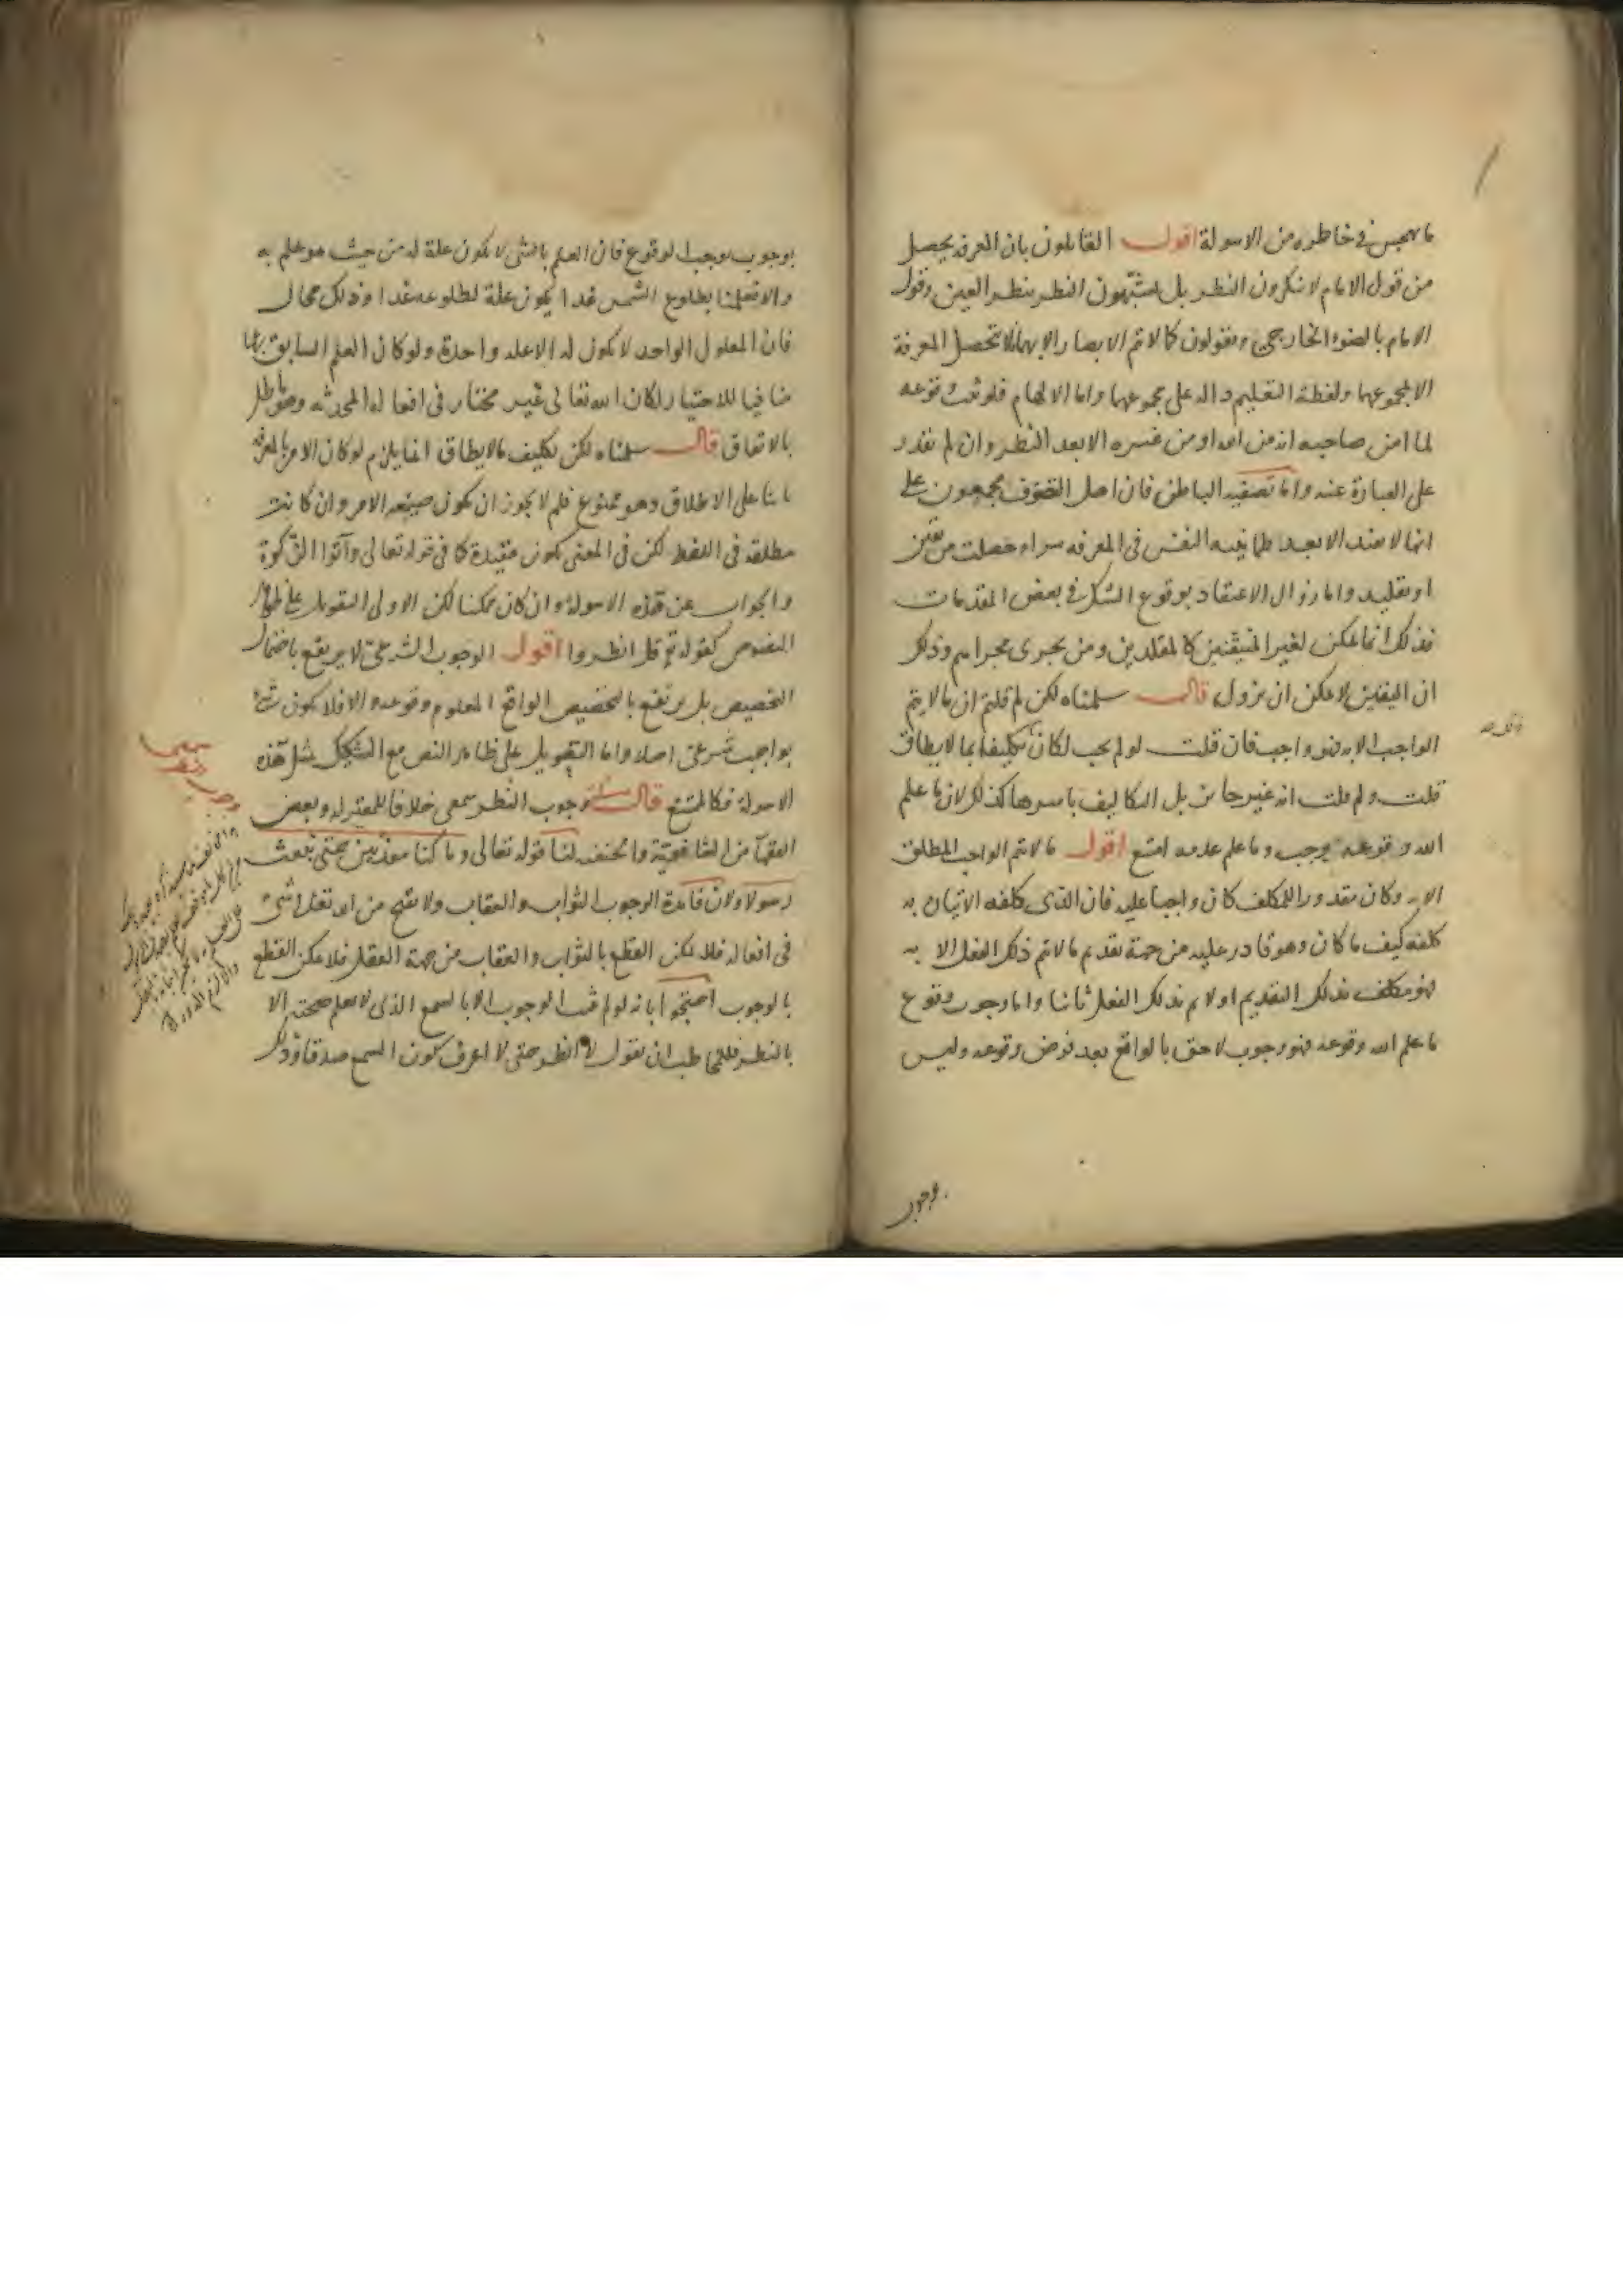 ما يهجس في خاطره من الاسولة اقول القائلون بان المعرفة يحصل
من قول الامام لا ينكرون النظر بل يشبّهون النظر بنظر العين وقول
الامام بالضوء الخارجي ويقولون كما لا يتم الابصار الا بهما لا تحصل المعرفة
الا بمجموعهما ولفظة التعليم دالة على مجموعهما واما الالهام فلو ثبت وقوعه
لما امن صاحبه انه من الله او من غيره الا بعد النظر وان لم يقدر
على العبارة عنه واما تصفية الباطن فان اهل التصوف يجمعون على
انها لا يفيد الا بعد طمانينة النفس في المعرفة سواء حصلت من يقين
او تقليد واما زوال الاعتقاد بوقوع الشك في بعض المقدمات
فذلك انما يمكن لغير المتيقنين كالمقلدين ومن يجرى مجراهم وذلك
ان اليقين لا يمكن ان يزول قال سلمناه لكن لم قلتم ان ما لا يتم
الواجب الا به فهو واجب فان قلت لو لم يجب لكان تكليفا بما لا يطاق
قلت ولم قلت انه غير جائز بل التكاليف باسرها كذلك لان ما علم
الله وقوعه يوجب وما علم عدمه امتنع اقول ما لا يتم الواجب المطلق
الا به وكان مقدورا للمكلف كان واجبا عليه فان الذى كلفه الاتيان به
كلفه كيف ما كان وهو قادر عليه من جهة تقديم ما لا يتم ذلك الفعل الا به
فهو مكلف بذلك التقديم اولا ثم بذلك الفعل ثانيا واما وجوب وقوع
ما علم الله وقوعه فهو وجوب لاحق بالواقع بعد فرض وقوعه وليس
بوجوب
بوجوب يوجب الوقوع فان العلم بالشى لا يكون علة له من حيث هو علم به
والا فعلمنا بطلوع الشمس غدا يكون علة لطلوعه غدا وذلك محال
فان المعلول الواحد لا يكون له الا علة واحدة ولو كان العلم السابق
منافيا للاختيار لكان الله تعالى غير مختار في افعاله المحدثة وهو باطل
بالاتفاق قال سلمناه لكن تكليف ما لا يطاق انما يلزم لو كان الامر بالمعرفة
ثابتا على الاطلاق وهو ممنوع فلم لا يجوز ان يكون صيغة الامر وان كانت
مطلقة في اللفظ لكن في المعنى يكون مقيدة كما في قوله تعالى وآتوا الزكوة
والجواب عن هذه الاسولة وان كان ممكنا لكن الاولى التعويل على ظواهر
النصوص كقوله تع قل انظروا اقول الوجوب الشرعي لا يرتفع باحتمال
التخصيص بل يرتفع بالتخصيص الواقع المعلوم وقوعه والا فلا يكون شئ
بواجب شرعي اصلا واما التعويل على ظاهر النص مع التشكيك بمثل هذه
الاسولة فكالممتنع قال مسئلة وجوب النظر سمعي خلافا للمعتزلة وبعض
الفقهآ من الشافعية والحنفية لنا قوله تعالى وما كنا معذبين حتى نبعث
رسولا ولان فائدة الوجوب الثواب والعقاب ولا يقبح من الله تعالى شئ
في افعاله فلا يمكن القطع بالثواب والعقاب من جهة العقل فلا يمكن القطع
بالوجوب احتجوا بانه لو لم يثبت الوجوب الا بالسمع الذى لا يعلم صحته الا
بالنظر فللمخاطب ان يقول لا انظر حتى لا اعرف كون السمع صدقا وذلك
وجوب النظر سمعي